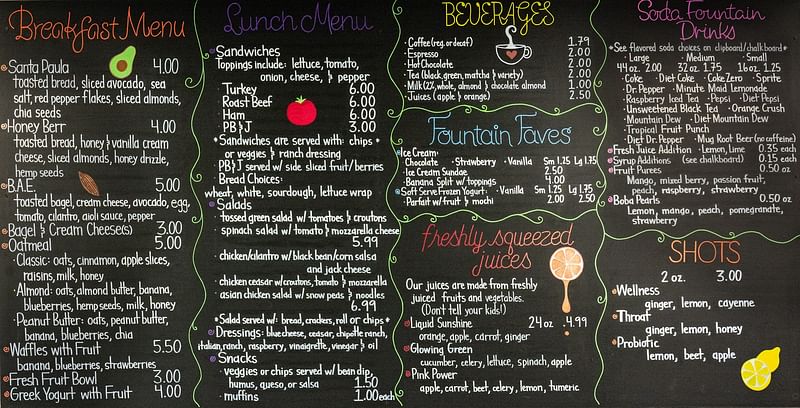 Breakfast Menu
Santa Paula 4.00
toasted bread, sliced avocado, sea
salt, red pepper flakes, sliced almonds,
chia seeds
Honey Berr 4.00
toasted bread, honey & vanilla cream
cheese, sliced almonds, honey drizzle,
hemp seeds
B.A.E. 5.00
toasted bagel, cream cheese, avocado, egg,
tomato, cilantro, aioli sauce, pepper
Bagel & Cream Cheese(s) 3.00
Oatmeal 5.00
Classic: oats, cinnamon, apple slices,
raisins, milk, honey
Almond: oats, almond butter, banana,
blueberries, hemp seeds, milk, honey
Peanut Butter: oats, peanut butter,
banana, blueberries, chia
Waffles with Fruit 5.50
banana, blueberries, strawberries
Fresh Fruit Bowl 3.00
Greek Yogurt with Fruit 4.00
Lunch Menu
Sandwiches
Toppings include: lettuce, tomato,
onion, cheese, & pepper
Turkey 6.00
Roast Beef 6.00
Ham 6.00
PB&J 3.00
*Sandwiches are served with: chips *
or veggies & ranch dressing
PB&J served w/ side sliced fruit/berries
Bread Choices:
wheat, white, sourdough, lettuce wrap
Salads
tossed green salad w/ tomatoes & croutons
spinach salad w/ tomato & mozzarella cheese
5.99
chicken/cilantro w/ black bean/corn salsa
and jack cheese
chicken ceasar w/croutons, tomato & mozzarella
asian chicken salad w/ snow peas & noodles
6.99
*Salad served w/: bread, crackers, roll or chips*
Dressings: bluecheese, ceasar, chipotle ranch,
italian, ranch, raspberry, vinaigrette, vinegar & oil
Snacks
veggies or chips served w/ bean dip,
humus, queso, or salsa 1.50
muffins 1.00each
BEVERAGES
Coffee (reg. or decaf) 1.79
Espresso 2.00
Hot Chocolate 2.00
Tea (black, green, matcha & variety) 2.00
Milk (2%, whole, almond & chocolate almond 1.00
Juices (apple & orange) 2.50
Fountain Faves
Ice Cream:
Chocolate · Strawberry · Vanilla Sm 1.25 Lg 1.75
Ice Cream Sundae 2.50
Banana Split w/ toppings 4.00
Soft Serve Frozen Yogurt: · Vanilla Sm 1.25 Lg 1.75
Parfait w/ fruit & mochi 2.00 2.50
freshly squeezed
juices
Our juices are made from freshly
juiced fruits and vegetables.
(Don't tell your kids!)
Liquid Sunshine 24 oz .4.99
orange, apple, carrot, ginger
Glowing Green
cucumber, celery, lettuce, spinach, apple
Pink Power
apple, carrot, beet, celery, lemon, tumeric
Soda Fountain
Drinks
*See flavored soda choices on clipboard/chalkboard*
· Large · Medium · Small
44 oz. 2.00 32 oz. 1.75 16 oz. 1.25
· Coke · Diet Coke · Coke Zero · Sprite
· Dr. Pepper · Minute Maid Lemonade
· Raspberry Iced Tea · Pepsi · Diet Pepsi
· Unsweetened Black Tea · Orange Crush
· Mountain Dew · Diet Mountain Dew
· Tropical Fruit Punch
· Diet Dr. Pepper · Mug Root Beer (no caffeine)
Fresh Juice Addition · Lemon, Lime 0.35 each
Syrup Additions (see chalkboard) 0.15 each
Fruit Purees 0.50 oz
Mango, mixed berry, passion fruit,
peach, raspberry, strawberry
Boba Pearls 0.50 oz
Lemon, mango, peach, pomegranate,
strawberry
SHOTS
2 oz. 3.00
Wellness
ginger, lemon, cayenne
Throat
ginger, lemon, honey
Probiotic
lemon, beet, apple